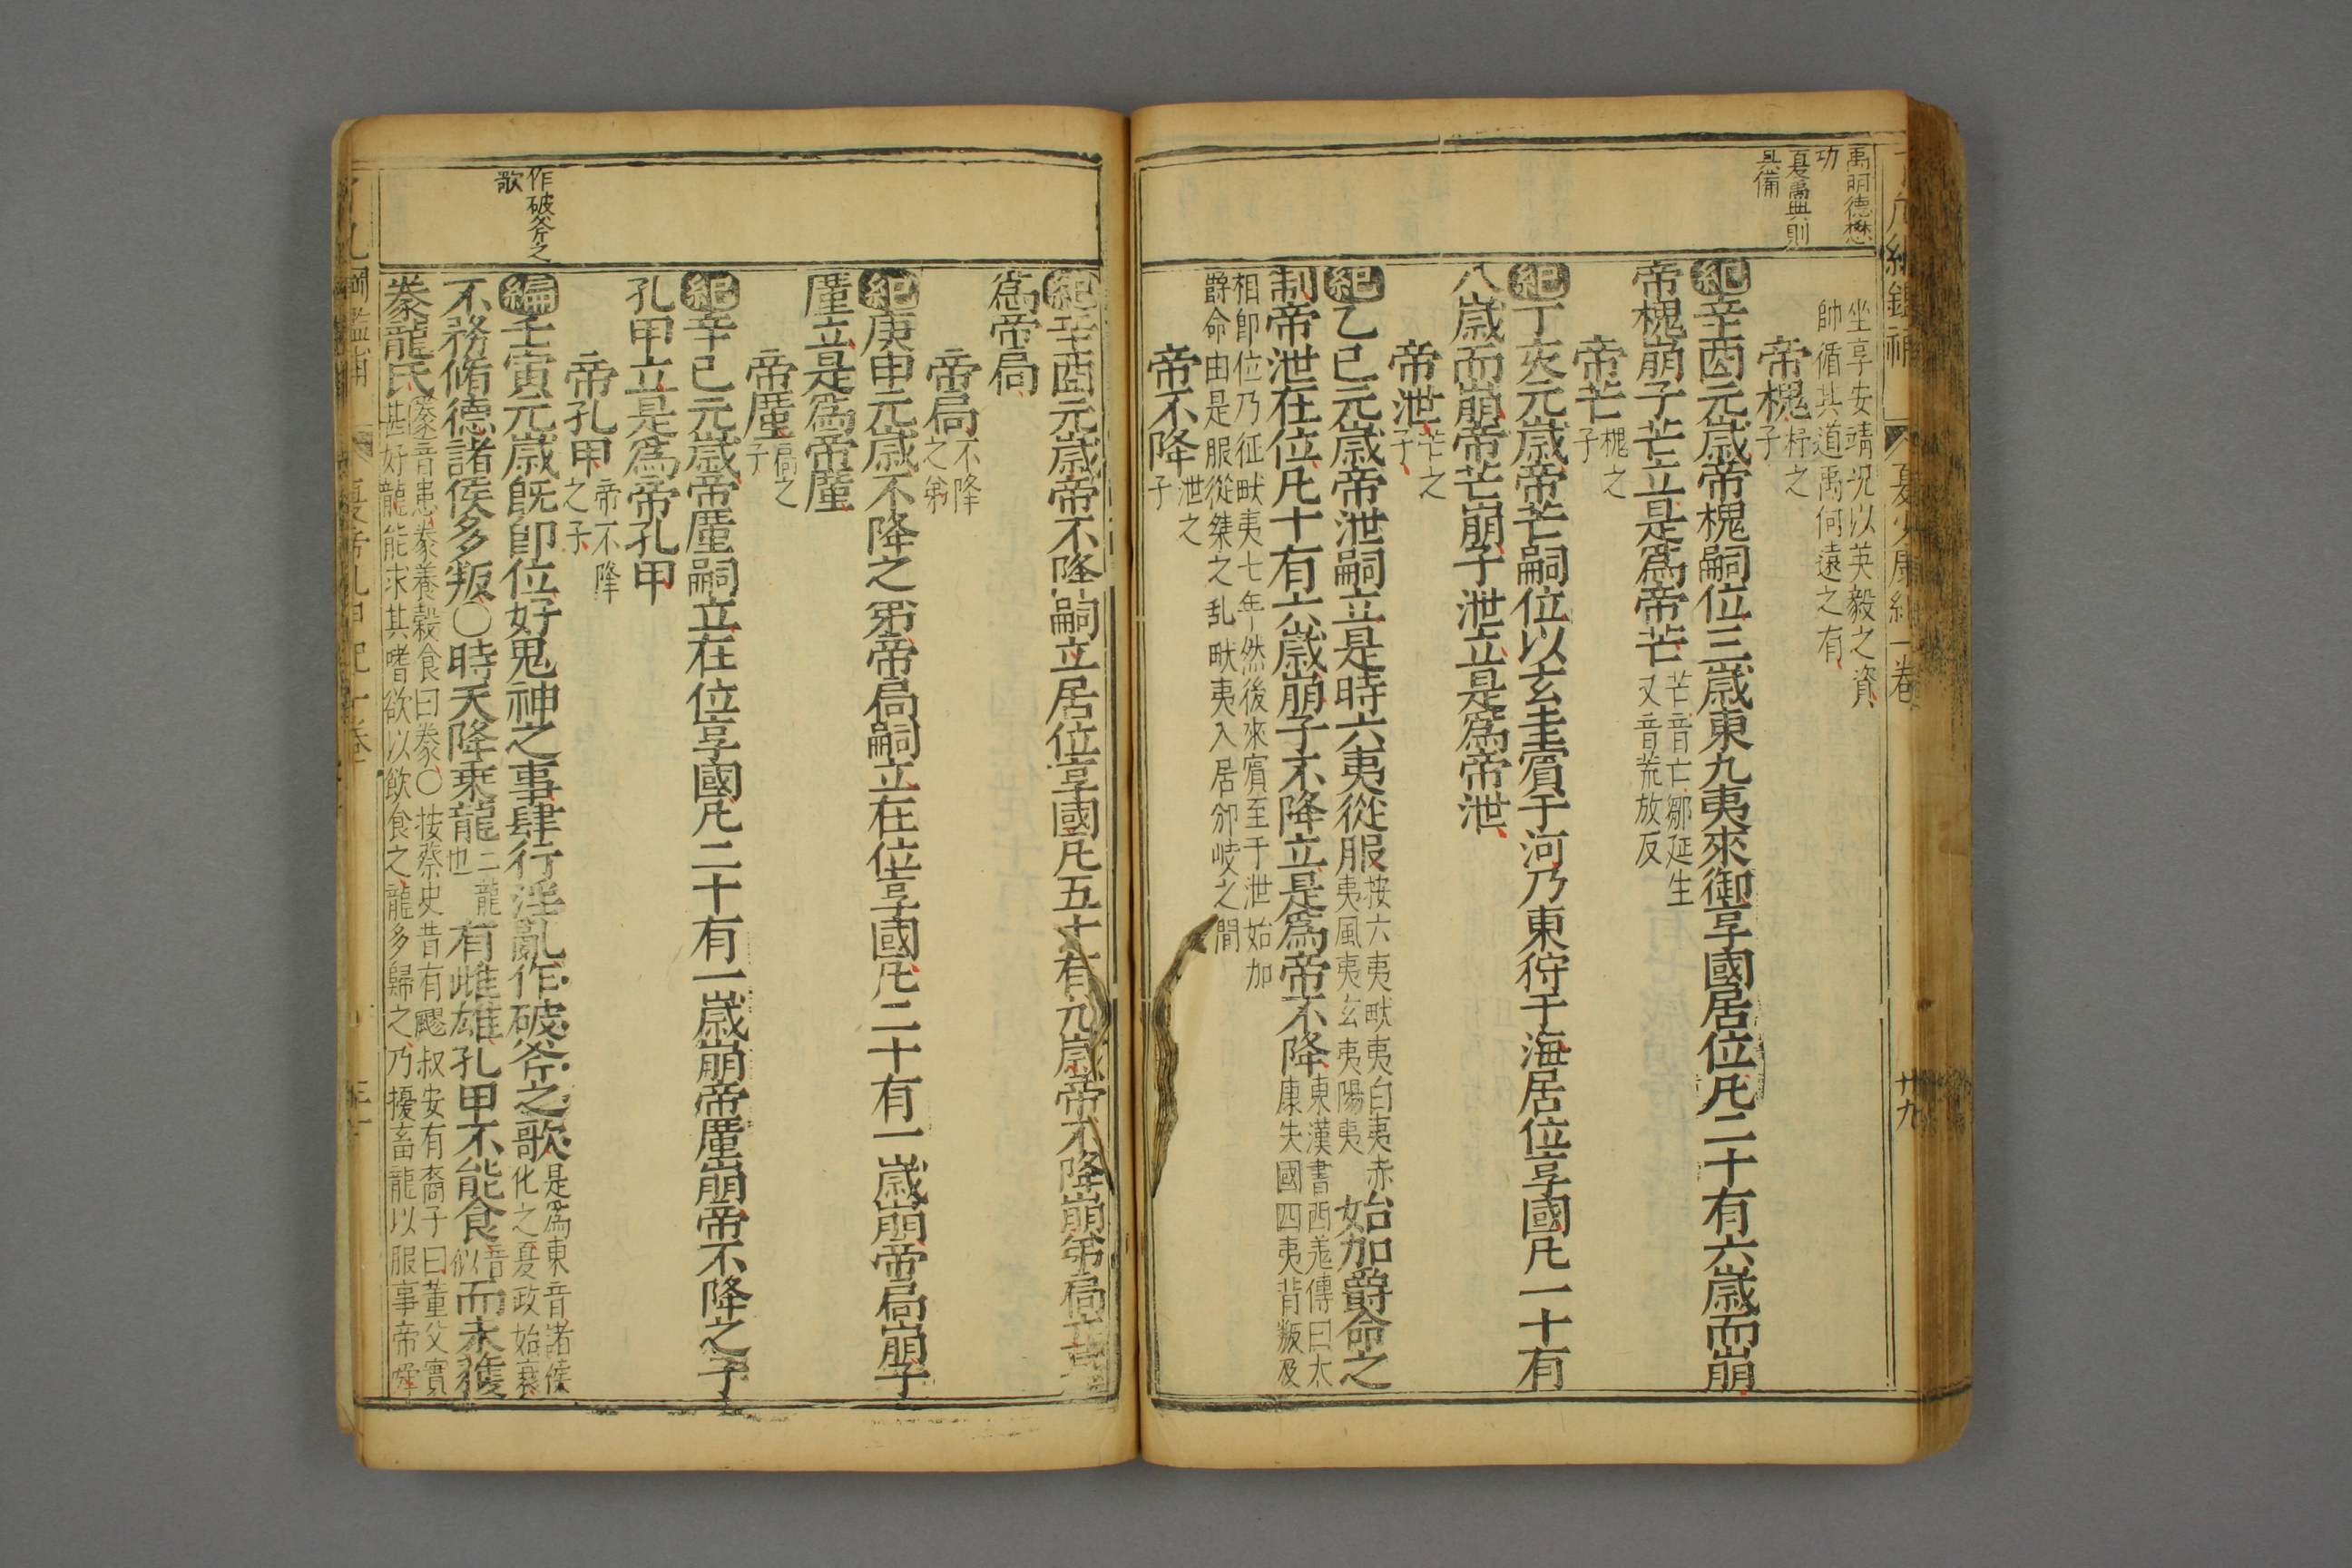 禹明德懋
功
夏禹典則
具備
坐享安靖況以英毅之資
帥循其道禹何遠之有
帝槐杼之子
紀辛酉元歲帝槐嗣位三歲東九夷來御享國居位凡二十有六歲而崩
帝槐崩子芒立是爲帝芒芒音亡鄒延生又音荒放反
帝芒槐之子
紀丁亥元歲帝芒嗣位以玄圭賔于河乃東狩于海居位享國凡一十有
八歲而崩帝芒崩子泄立是爲帝泄
帝泄芒之子
紀乙巳元歲帝泄嗣立是時六夷從服按六夷畎夷白夷赤夷風夷玄夷陽夷始加爵命之
制帝泄在位凡十有六歲崩子不降立是爲帝不降東漢書西羗傳曰太康失國四夷背叛及
相即位乃征畎夷七年然後來賔至于泄始加
爵命由是服從桀之乱畎夷入居邠岐之間
帝不降泄之子
夏少康紀一卷
廿九
紀辛酉元歲帝不降嗣立居位享國凡五十有九歲帝不降崩弟局立是
爲帝局
帝局不降之弟
紀庚申元歲不降之弟帝局嗣立在位享國凡二十有一歲崩帝局崩子
廑立是爲帝廑
帝廑局之子
紀辛巳元歲帝廑嗣立在位享國凡二十有一歲崩帝廑崩帝不降之子
孔甲立是爲帝孔甲
帝孔甲帝不降之子
作破斧之
歌
編壬寅元歲既即位好鬼神之事肆行淫亂作破斧之歌是爲東音諸侯化之夏政始衰
不務脩德諸侯多叛〇時天降乘龍二龍也有雌雄孔甲不能食音似而未獲
豢龍氏豢音患豢養穀食曰豢〇按蔡史昔有飂叔安有裔子曰董父實甚好龍能求其嗜欲以飲食之龍多歸之乃擾畜龍以服事帝舜
夏帝孔甲紀一卷